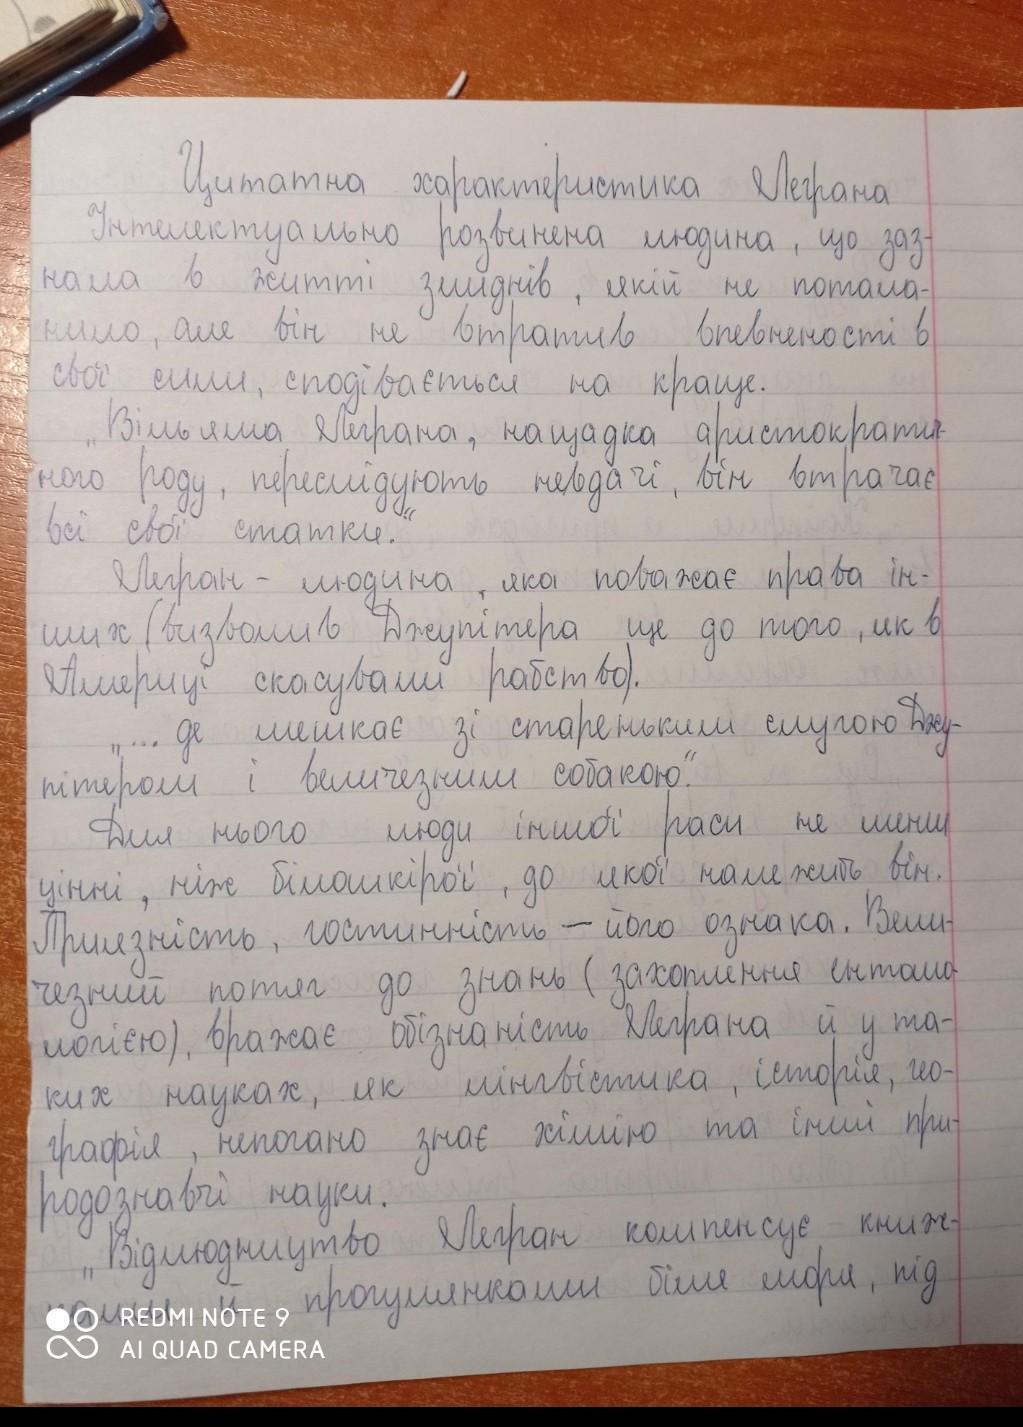 Цитатна характеристика Леграна
Інтелектуально розвинена людина, що заз-
нала в житті злиднів, якій не потала-
нило, але він не втратив впевненості в
свої сили, сподівається на краще.
„Вільяма Леграна, нащадка аристократич-
ного роду, переслідують невдачі, він втрачає
всі свої статки.“
Легран – людина, яка поважає права ін-
ших (визволив Джупітера ще до того, як в
Америці скасували рабство).
„... де мешкає зі стареньким слугою Джу-
пітером і величезним собакою“.
Для нього люди іншої раси не менш
цінні, ніж білошкірої, до якої належить він.
Приязність, гостинність – його ознака. Вели-
чезний потяг до знань (захоплення ентомо-
логією), вражає обізнаність Леграна й у та-
ких науках, як лінгвістика, історія, гео-
графія, непогано знає хімію та інші при-
родознавчі науки.
„Відлюдництво Легран компенсує книж-
й прогулянками біля моря, під
REDMI NOTE 9
AI QUAD CAMERA